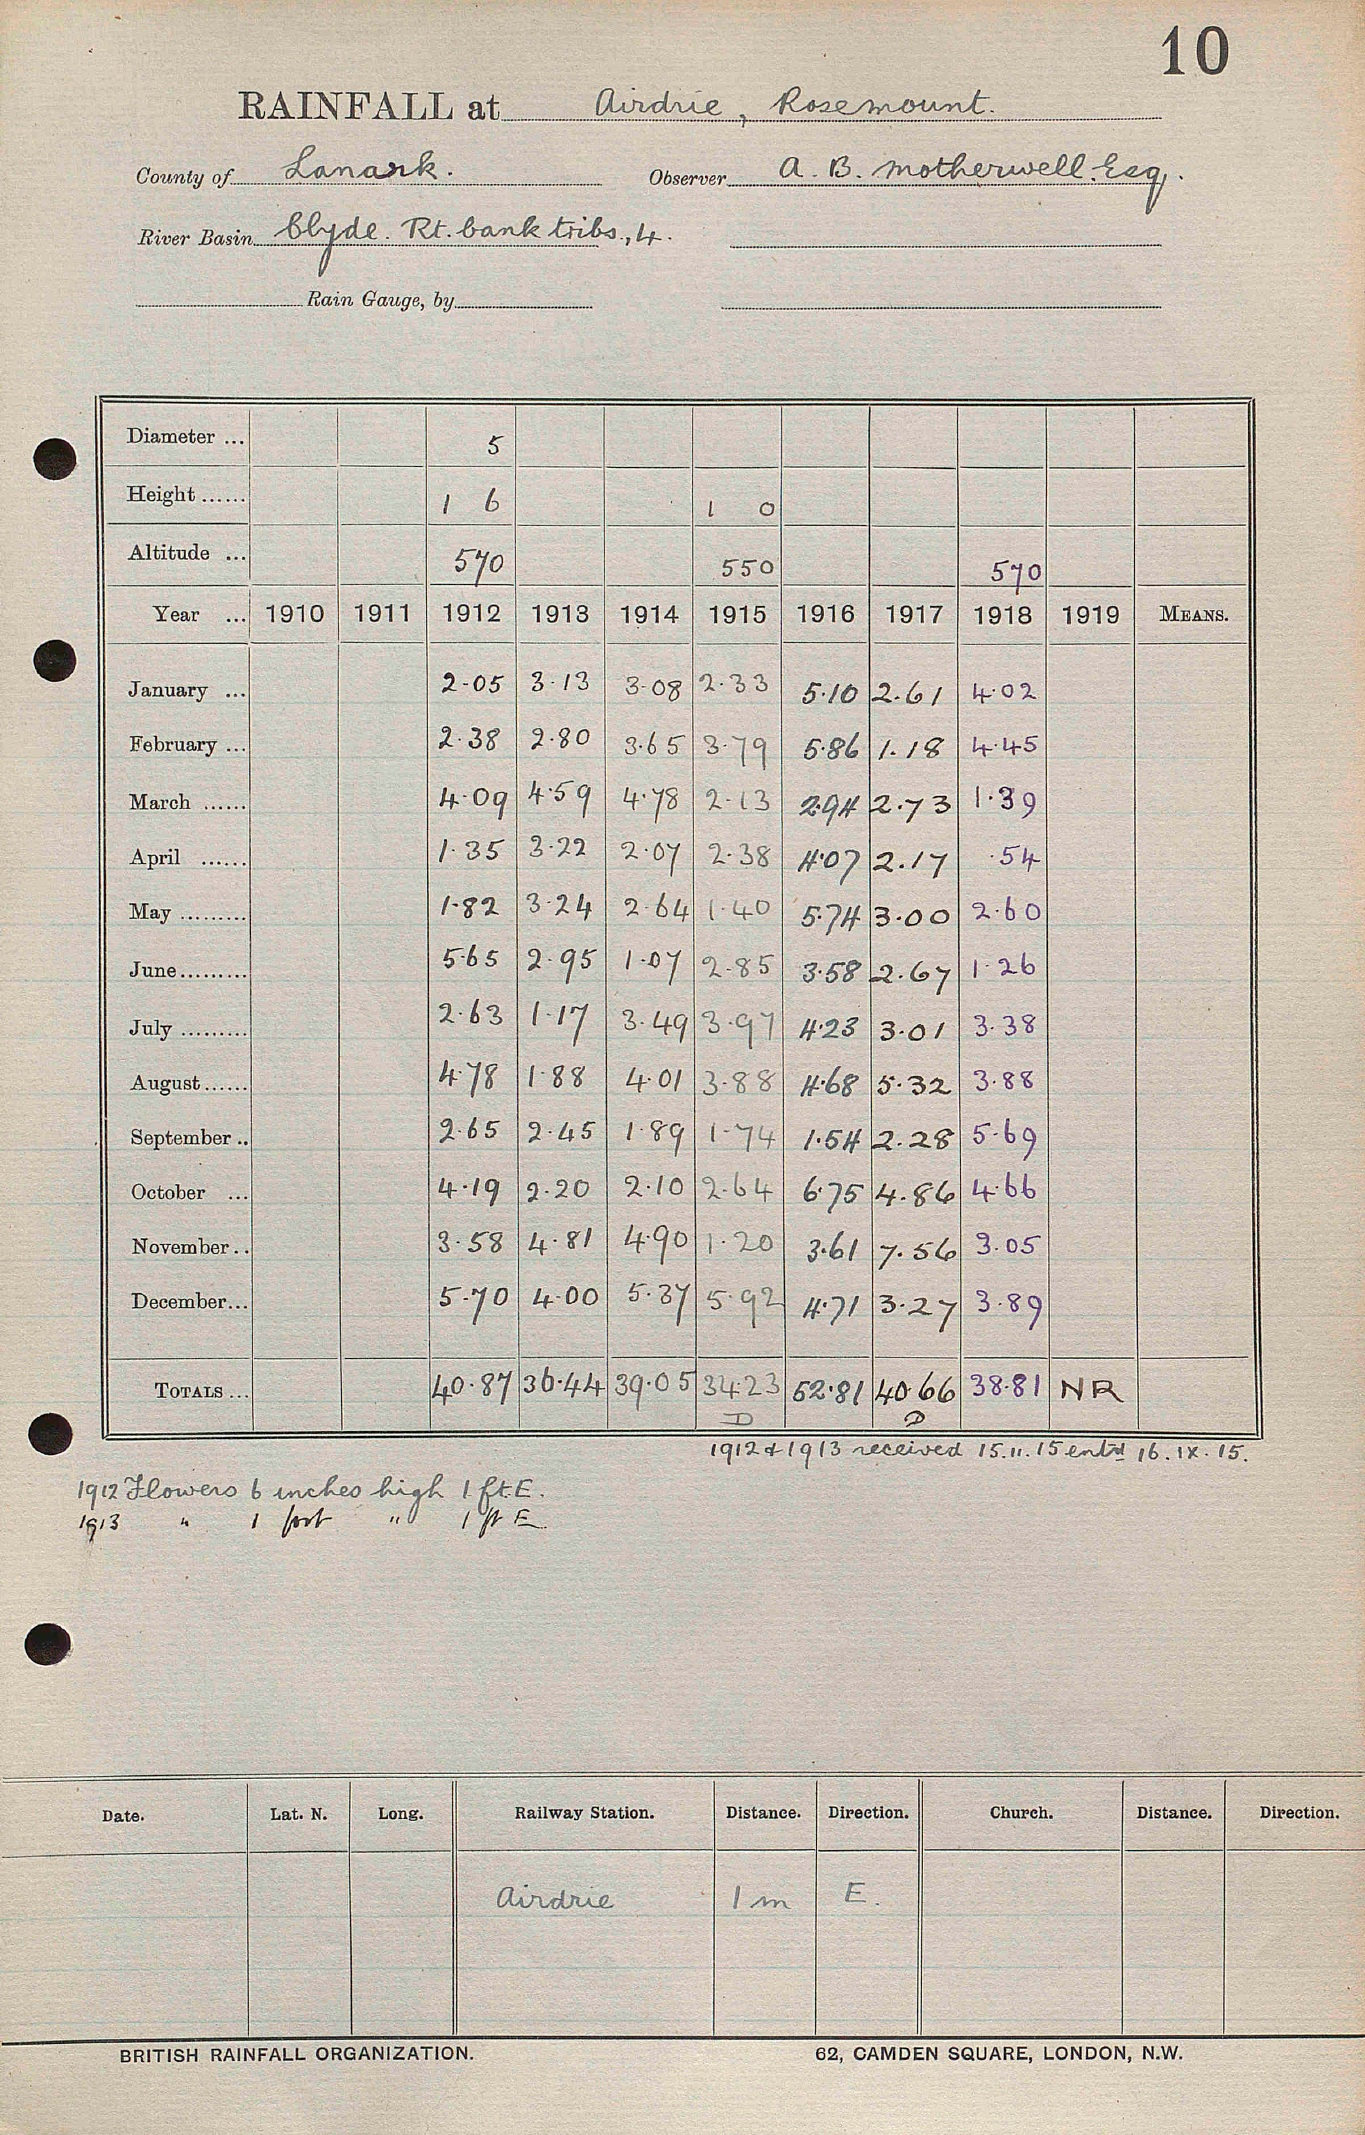 10
RAINFALL at Airdrie, Rosemount.
County of Lanark. Observer A. B. Motherwell. Esq.
River Basin Clyde. Rt. bank tribs., 4.
Rain Gauge, by
Diameter ... 5
Height ...... 1 6 1 0
Altitude ... 570 550 570
Year ... 1910 1911 1912 1913 1914 1915 1916 1917 1918 1919 MEANS.
January ... 2.05 3.13 3.08 2.33 5.10 2.61 4.02
February ... 2.38 2.80 3.65 3.79 5.86 1.18 4.45
March ...... 4.09 4.59 4.78 2.13 2.94 2.73 1.39
April ...... 1.35 3.22 2.07 2.38 4.07 2.17 .54
May ......... 1.82 3.24 2.64 1.40 5.74 3.00 2.60
June ......... 5.65 2.95 1.07 2.85 3.58 2.67 1.26
July ......... 2.63 1.17 3.49 3.97 4.23 3.01 3.38
August ...... 4.78 1.88 4.01 3.88 4.68 5.32 3.88
September .. 2.65 2.45 1.89 1.74 1.54 2.28 5.69
October ... 4.19 2.20 2.10 2.64 6.75 4.86 4.66
November .. 3.58 4.81 4.90 1.20 3.61 7.56 3.05
December ... 5.70 4.00 5.37 5.92 4.71 3.27 3.89
TOTALS ... 40.87 36.44 39.05 34.23 52.81 40.66 38.81 NR
D D
1912 & 1913 received 15.11.15 entd 16.IX.15.
1912 Flowers 6 inches high 1 ft. E.
1913 " 1 foot " 1 ft E
Date. Lat. N. Long. Railway Station. Distance. Direction. Church. Distance. Direction.
Airdrie 1 m E.
BRITISH RAINFALL ORGANIZATION. 62, CAMDEN SQUARE, LONDON, N.W.